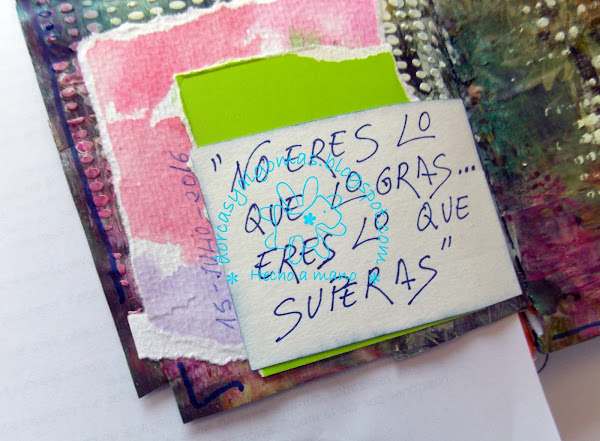 "NO ERES LO
QUE LOGRAS...
ERES LO QUE
SUPERAS"
15-JULIO-2016
dorcasyndorcas.blogspot.com
* Hecho a mano *